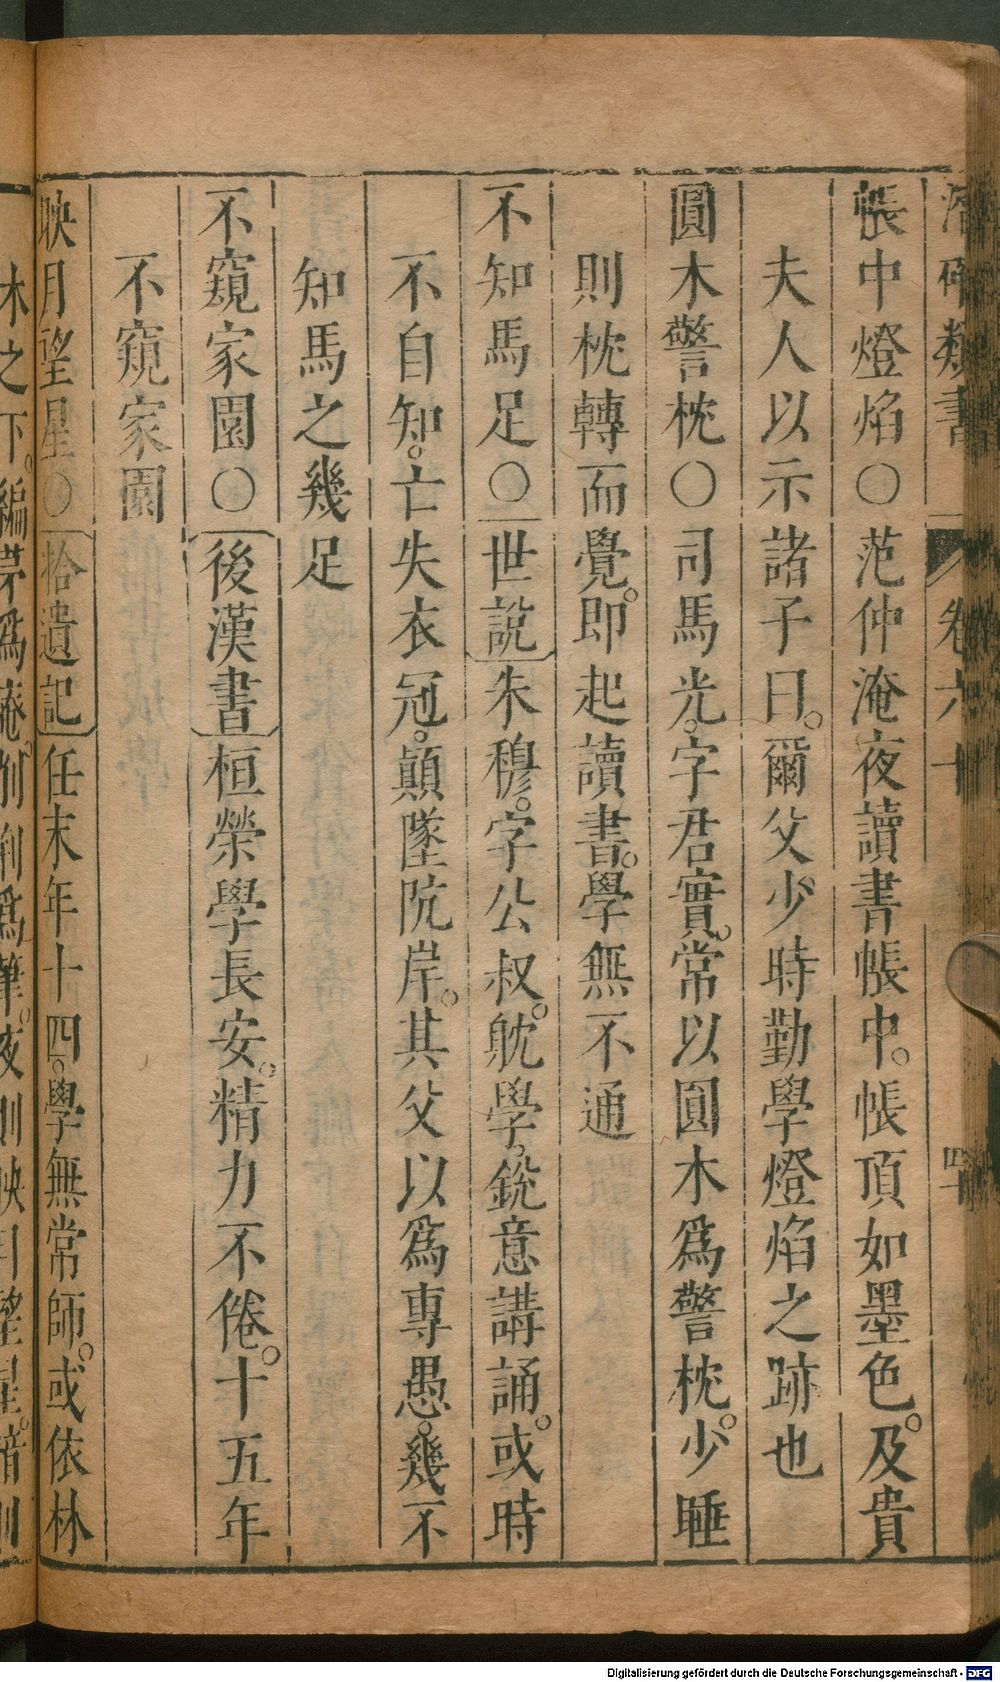 潛確類書 卷六十 四十
帳中燈焰〇范仲淹夜讀書帳中。帳頂如墨色。及貴
夫人以示諸子曰。爾父少時勤學燈焰之跡也
圓木警枕〇司馬光。字君實。常以圓木為警枕。少睡
則枕轉而覺。即起讀書。學無不通
不知馬足〇世說朱穆。字公叔。躭學。銳意講誦。或時
不自知。亡失衣冠。顛墜阬岸。其父以為專愚。幾不
知馬之幾足
不窺家園〇後漢書桓榮學長安。精力不倦。十五年
不窺家園
映月望星〇拾遺記任末年十四。學無常師。或依林
木之下。編茅為庵。削荊為筆。夜則映月望星。暗則
Digitalisierung gefördert durch die Deutsche Forschungsgemeinschaft - DFG